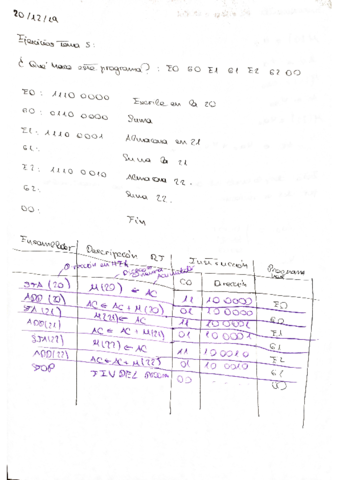 20/12/19
Ejercicios Tema 5:
¿ Qué hace este programa? : E0 60 E1 61 E2 62 00
E0: 1110 0000 Escribe en la 20
60: 0110 0000 Suma
E1: 1110 0001 Almacena en 21
61: Suma la 21
E2: 1110 0010 Almacena 22.
62: Suma 22.
00: Fin
Ensamblador Descripción RT Instrucción Programa
CO Dirección
STA (20) M(20) ← AC 11 10 0000 E0
ADD (20) AC ← AC + M(20) 01 10 0000 60
STA (21) M(21) ← AC 11 10 0001 E1
ADD (21) AC ← AC + M(21) 01 10 0001 61
STA (22) M(22) ← AC 11 10 0010 E2
ADD (22) AC ← AC + M(22) 01 10 0010 62
STOP FIN DEL 00 00